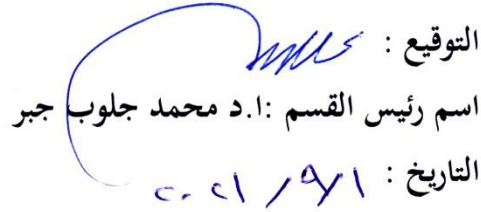 التوقيع :
اسم رئيس القسم :ا.د محمد جلوب جبر
التاريخ : ٢٠٢١ /٩/١